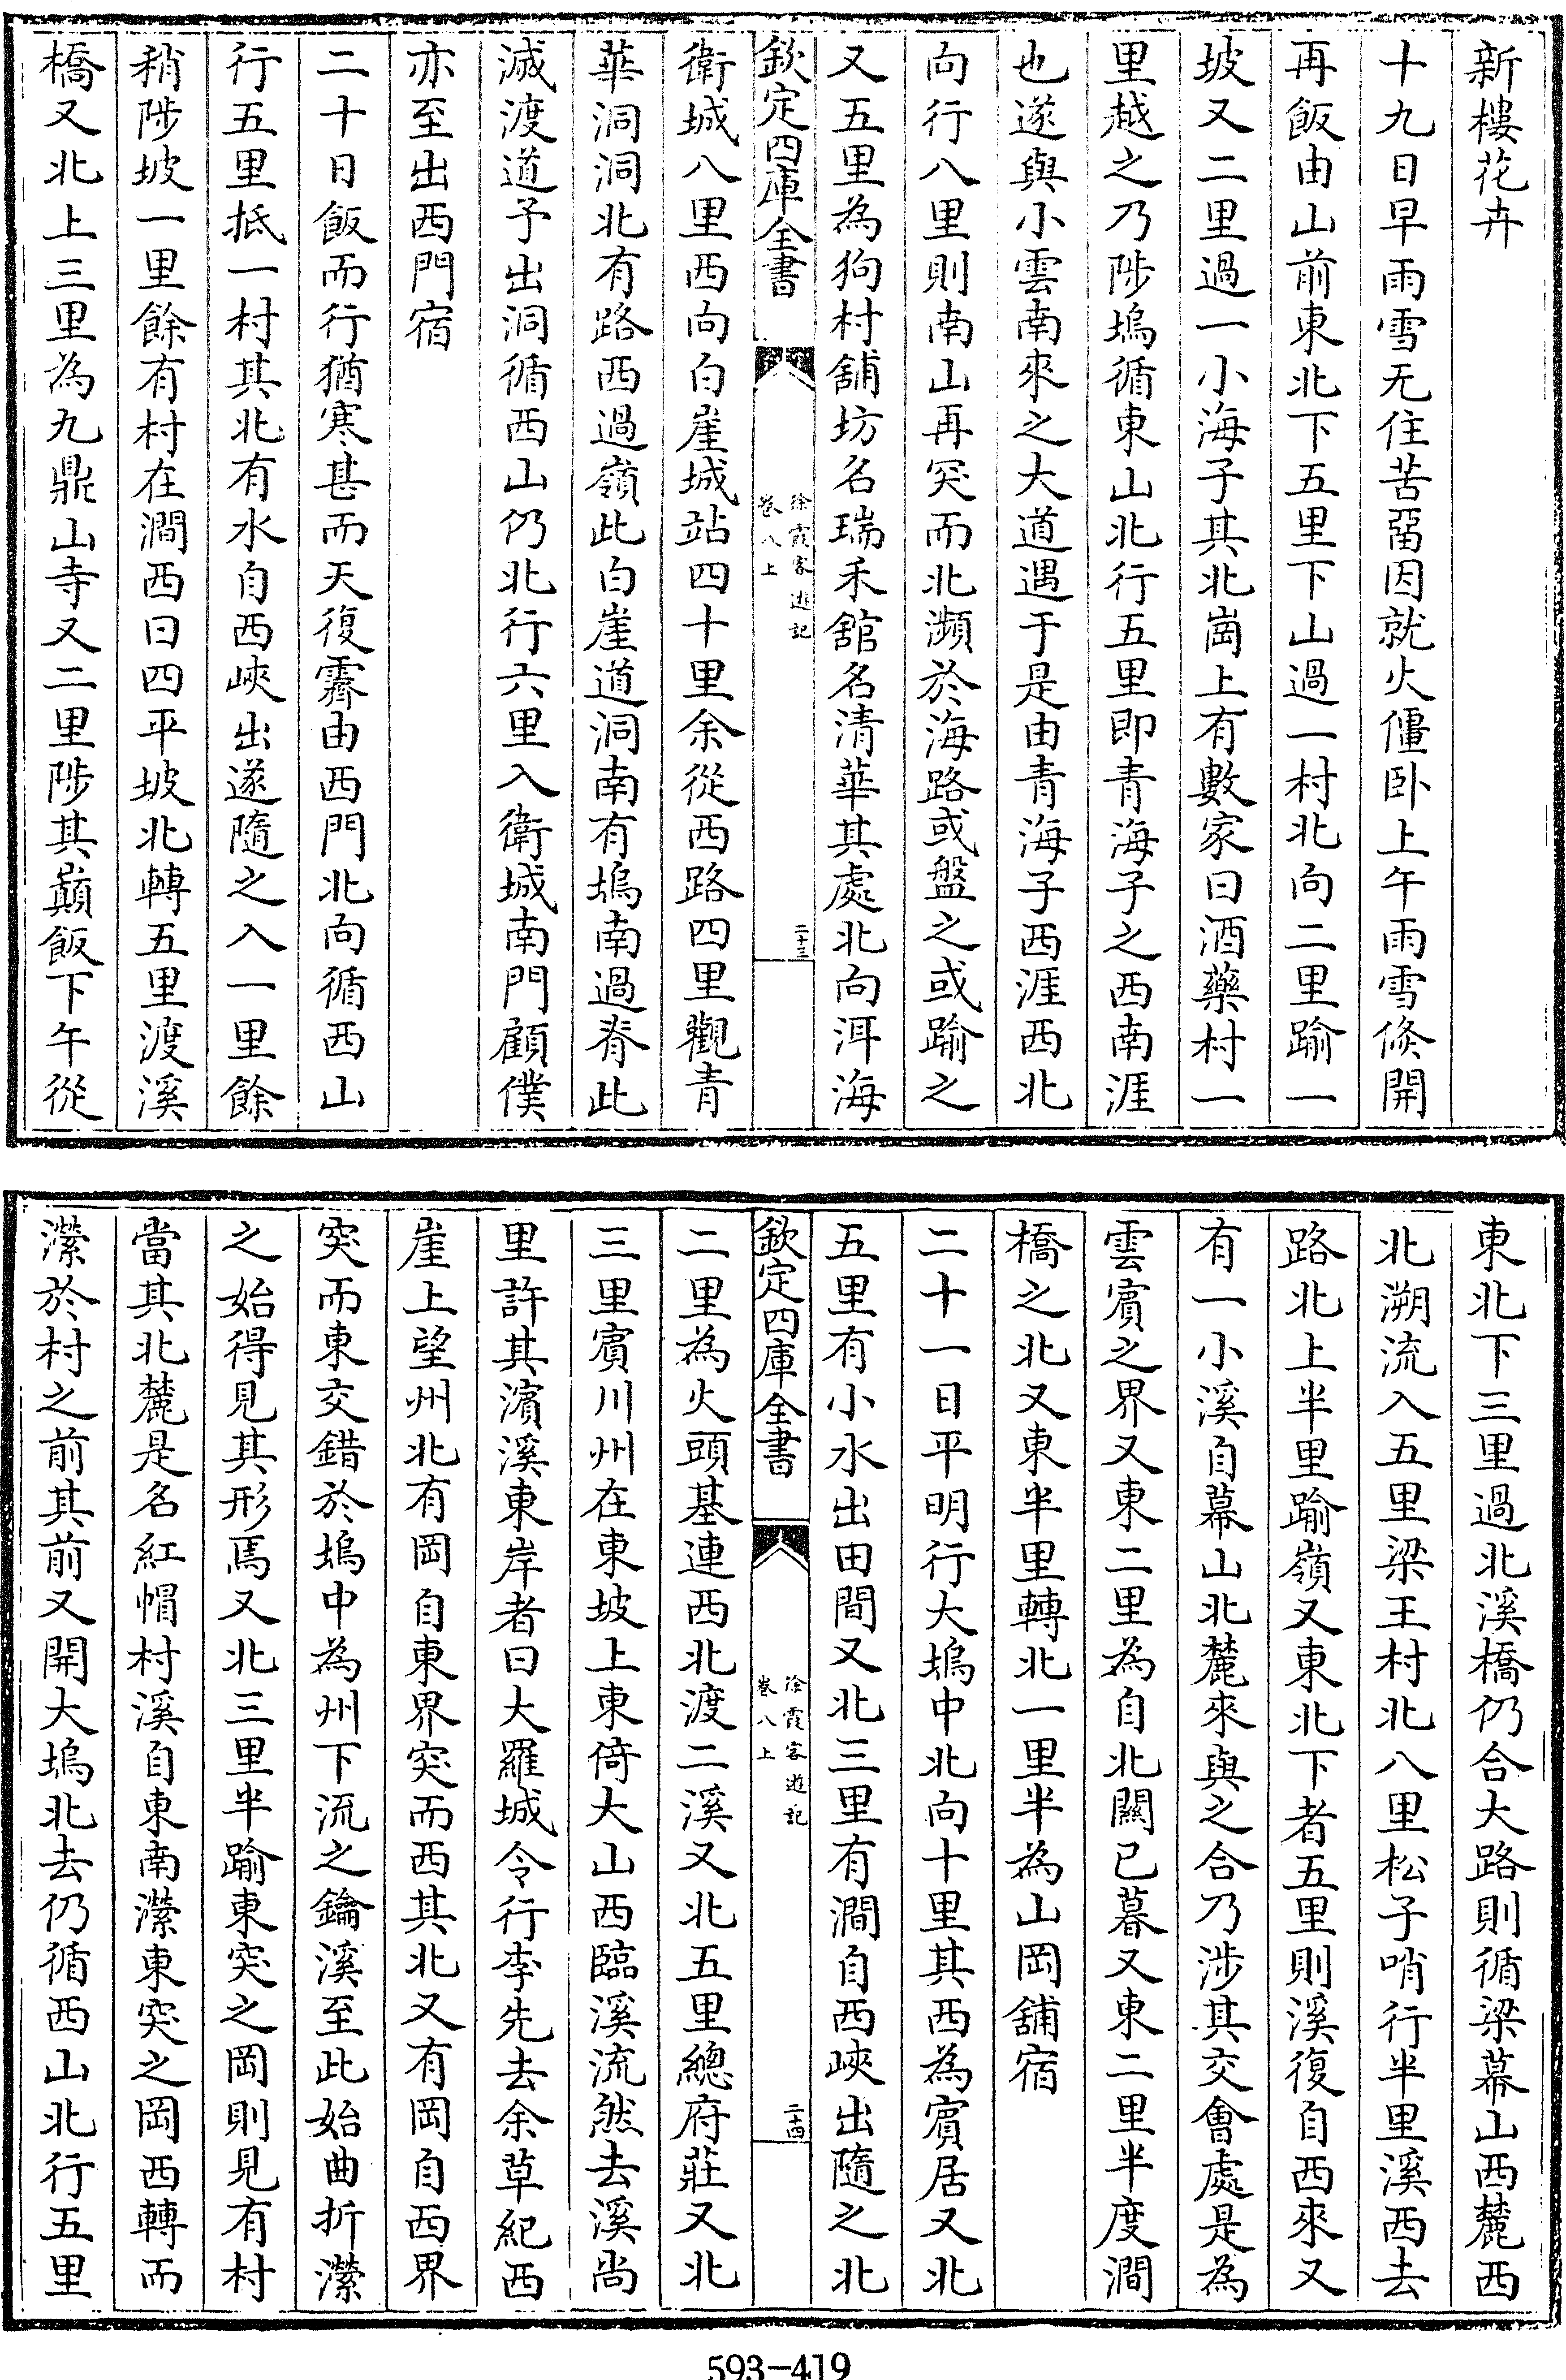 新樓花卉
十九日早雨雪无住苦畱因就火僵卧上午雨雪倏開
再飯由山前東北下五里下山過一村北向二里踰一
坡又二里過一小海子其北崗上有數家曰酒藥村一
里越之乃陟塢循東山北行五里即青海子之西南涯
也遂與小雲南來之大道遇于是由青海子西涯西北
向行八里則南山再突而北瀕於海路或盤之或踰之
又五里為狗村舖坊名瑞禾舘名清華其處北向洱海
欽定四庫全書
徐霞客遊記
卷八上
二十三
衛城八里西向白崖城站四十里余從西路四里觀青
華洞洞北有路西過嶺此白崖道洞南有塢南過脊此
滅渡道予出洞循西山仍北行六里入衛城南門顧僕
亦至出西門宿
二十日飯而行猶寒甚而天復霽由西門北向循西山
行五里抵一村其北有水自西峽出遂隨之入一里餘
稍陟坡一里餘有村在澗西曰四平坡北轉五里渡溪
橋又北上三里為九鼎山寺又二里陟其巔飯下午從
東北下三里過北溪橋仍合大路則循梁幕山西麓西
北溯流入五里梁王村北八里松子哨行半里溪西去
路北上半里踰嶺又東北下者五里則溪復自西來又
有一小溪自幕山北麓來與之合乃涉其交會處是為
雲賓之界又東二里為自北關已暮又東二里半度澗
橋之北又東半里轉北一里半為山岡舖宿
二十一日平明行大塢中北向十里其西為賓居又北
五里有小水出田間又北三里有澗自西峽出隨之北
欽定四庫全書
徐霞客遊記
卷八上
二十四
二里為火頭基連西北渡二溪又北五里總府莊又北
三里賓川州在東坡上東倚大山西臨溪流然去溪尚
里許其濱溪東岸者曰大羅城令行李先去余草紀西
崖上望州北有岡自東界突而西其北又有岡自西界
突而東交錯於塢中為州下流之鑰溪至此始曲折瀠
之始得見其形焉又北三里半踰東突之岡則見有村
當其北麓是名紅帽村溪自東南瀠東突之岡西轉而
瀠於村之前其前又開大塢北去仍循西山北行五里
593-419